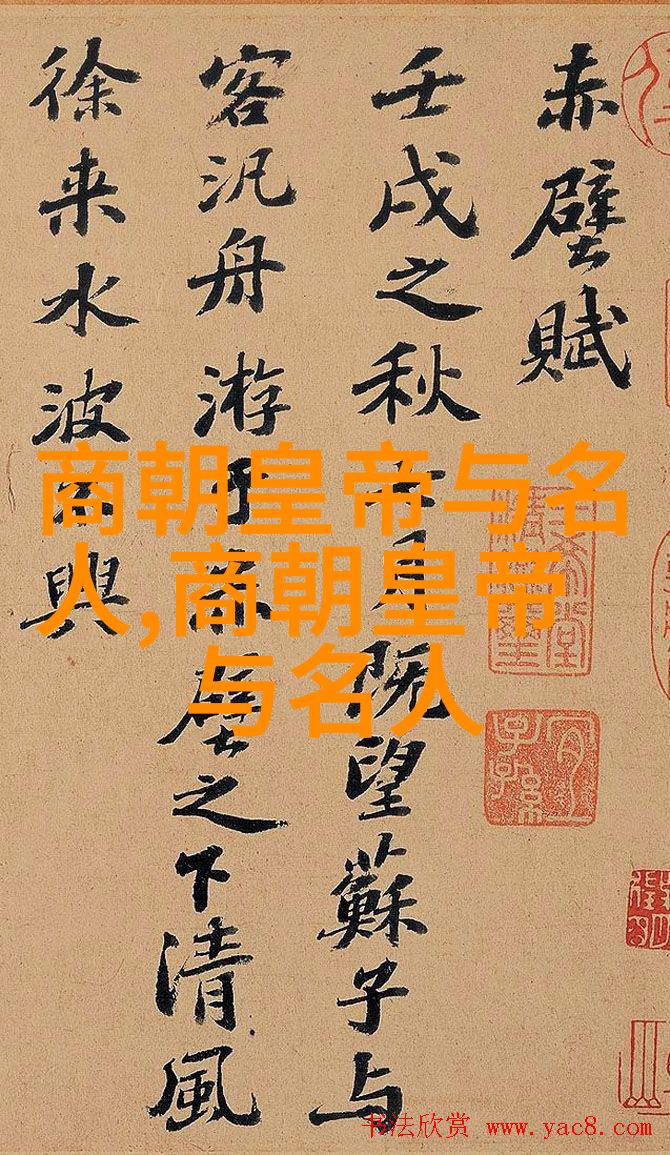 赤壁賦
壬戌之秋七月既望蘇子与
客汎舟游于赤壁之下清風
徐来水波不興
商朝皇帝与名
人,商朝皇帝
与名人
书法欣赏 www.yac8.com